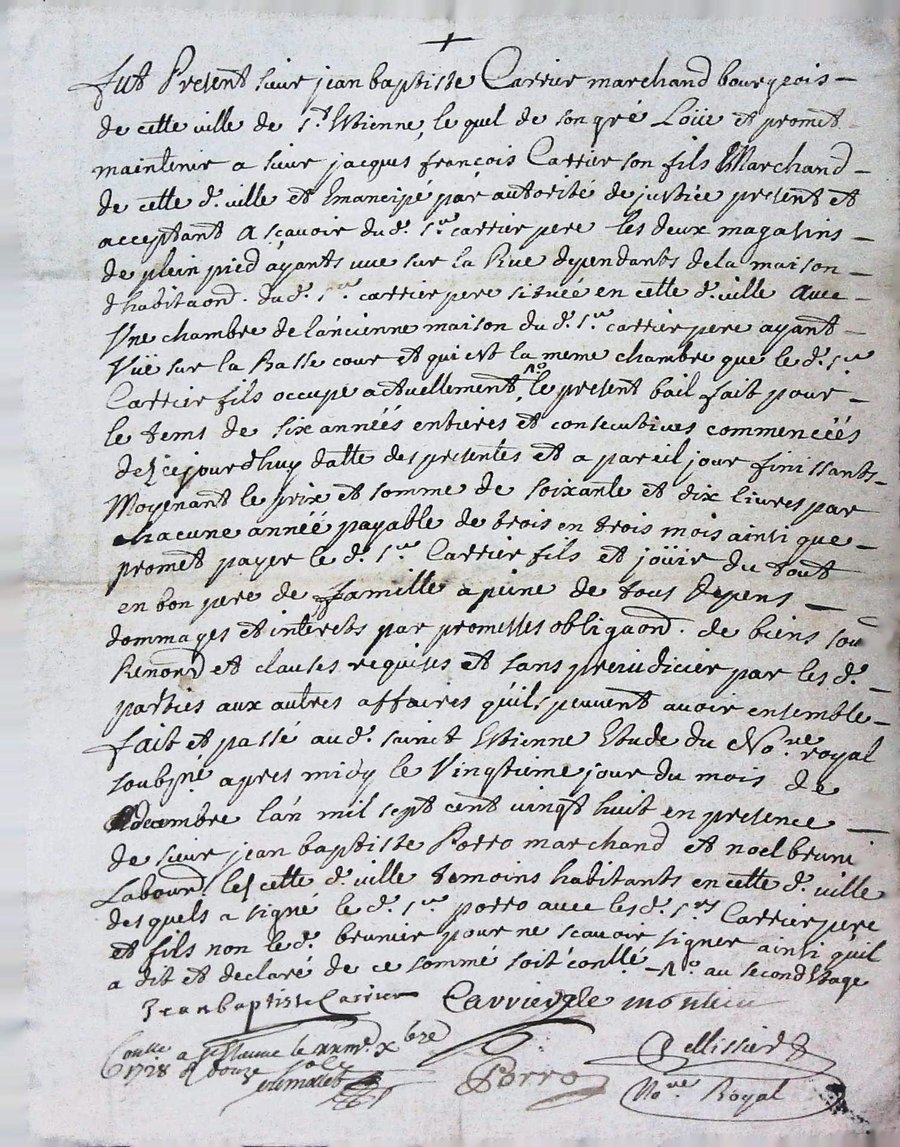 fut Present sieur jean baptiste Carrier marchand bourgeois
de cette ville de St. Etienne, le quel de son gré Loüe et promet
maintenir a sieur jacques françois Carrier son fils Marchand
de cette d. ville et Emancipé par autorité de justice present et
acceptant a scavoir dud. Sr. carrier pere les deux magasins
de plein pied ayants vue sur la Rue dependants dela maison
dhabitaond. dud. Sr. carrier pere située en cette d. ville avec
Une chambre de lancienne maison du d. Sr. carrier pere ayant
Vüe sur la Basse cour et qui est la meme chambre que le d. Sr.
Carrier fils occupe actuellement, le present bail fait pour
le tems de six années entieres et consecutives commencées
dez cejourdhuy datte des presentes et a pareil jour finissants
Moyenant le prix et somme de soixante et dix livres par
chacune année payable de trois en trois mois ainsi que
promet payer le d. Sr. Carrier fils et joüir du tout
en bon pere de ffamille a peine de tous depens
dommages et interets par promesses obligaond. de biens
Renond et clauses requises et sans prejudicier par les d.
parties aux autres affaires quils peuvent avoir ensemble
fait et passé aud. sainct Etienne Etude du No.re royal
soubzné apres midy le Vingtieme jour du mois de
decembre lan mil sept cent vingt huit en presence
de sieur jean baptiste Porro marchand et noel
Labourd. cette d. ville temoins habitants en cette d. ville
desquels a signé le d. Sr. porro avec lesd. Srs. Carrier pere
et fils non le d. brunier pour ne scavoir signer ainsi quil
a dit et declaré de ce sommé soit conllé au second Etage
Jean baptiste Carrier Carrier
Conlle a St Etienne le xbre
1728 R douze Porro Pellissier
No.re Royal